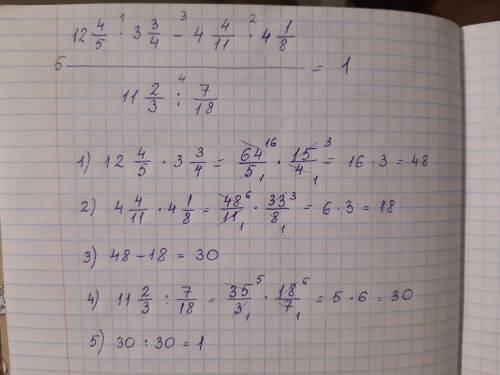 12 4/5 ·¹ 3 3/4 −³ 4 4/11 ·² 4 1/8
5 ———————— = 1
11 2/3 :⁴ 7/18
1) 12 4/5 · 3 3/4 = 64¹⁶/5₁ · 15³/4₁ = 16 · 3 = 48
2) 4 4/11 · 4 1/8 = 48⁶/11₁ · 33³/8₁ = 6 · 3 = 18
3) 48 − 18 = 30
4) 11 2/3 : 7/18 = 35⁵/3₁ · 18⁶/7₁ = 5 · 6 = 30
5) 30 : 30 = 1